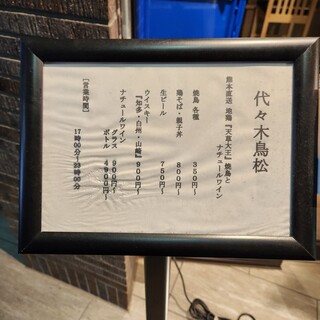 代々木鳥松
熊本直送 地鶏『天草大王』焼鳥と
ナチュールワイン
焼鳥 各種 350円～
鶏そば・親子丼 800円～
生ビール 750円～
ウイスキー
『知多・白州・山崎』 900円～
ナチュールワイン
グラス 900円～
ボトル 4900円～
[営業時間]
17時00分～23時00分